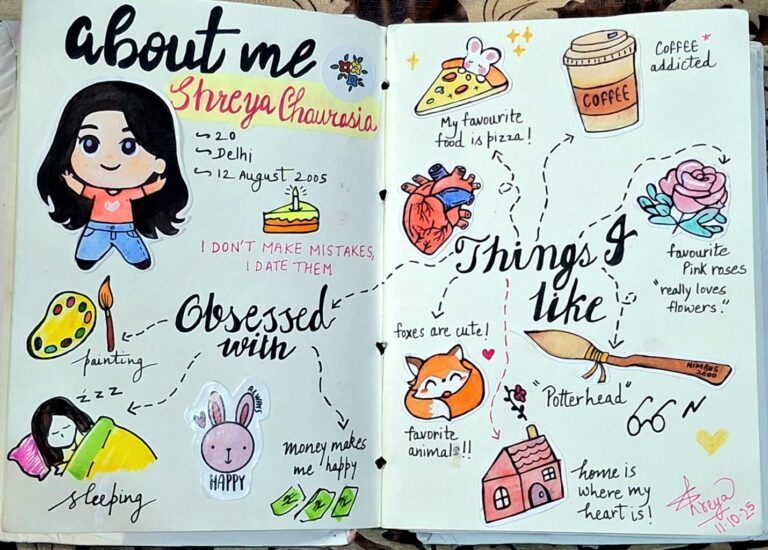 about me
Shreya Chaurasia
~ 20
~ Delhi
~ 12 August 2005
I DON'T MAKE MISTAKES,
I DATE THEM
Obsessed
with
painting
z z z
sleeping
ALWAYS
HAPPY
money makes
me happy
My favourite
food is pizza!
COFFEE
COFFEE
addicted
Things I
like
favourite
Pink roses
"really loves
flowers."
foxes are cute!
favorite
animals!!
NIMBUS
2000
"Potterhead"
home is
where my
heart is!
Shreya
11.10.25